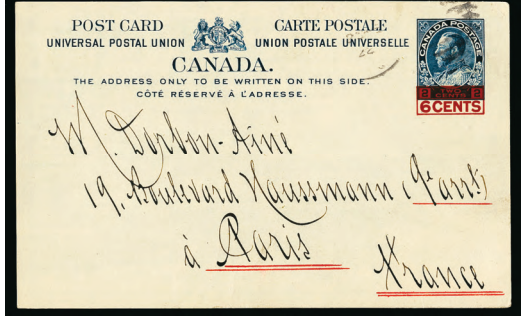 POST CARD CARTE POSTALE
UNIVERSAL POSTAL UNION UNION POSTALE UNIVERSELLE
CANADA.
THE ADDRESS ONLY TO BE WRITTEN ON THIS SIDE.
CÔTÉ RÉSERVÉ À L'ADRESSE.
CANADA POSTAGE
2 TWO CENTS 2
6 CENTS
M. Dorbon-Ainé
19, Boulevard Haussmann (9e arrt)
à Paris
France